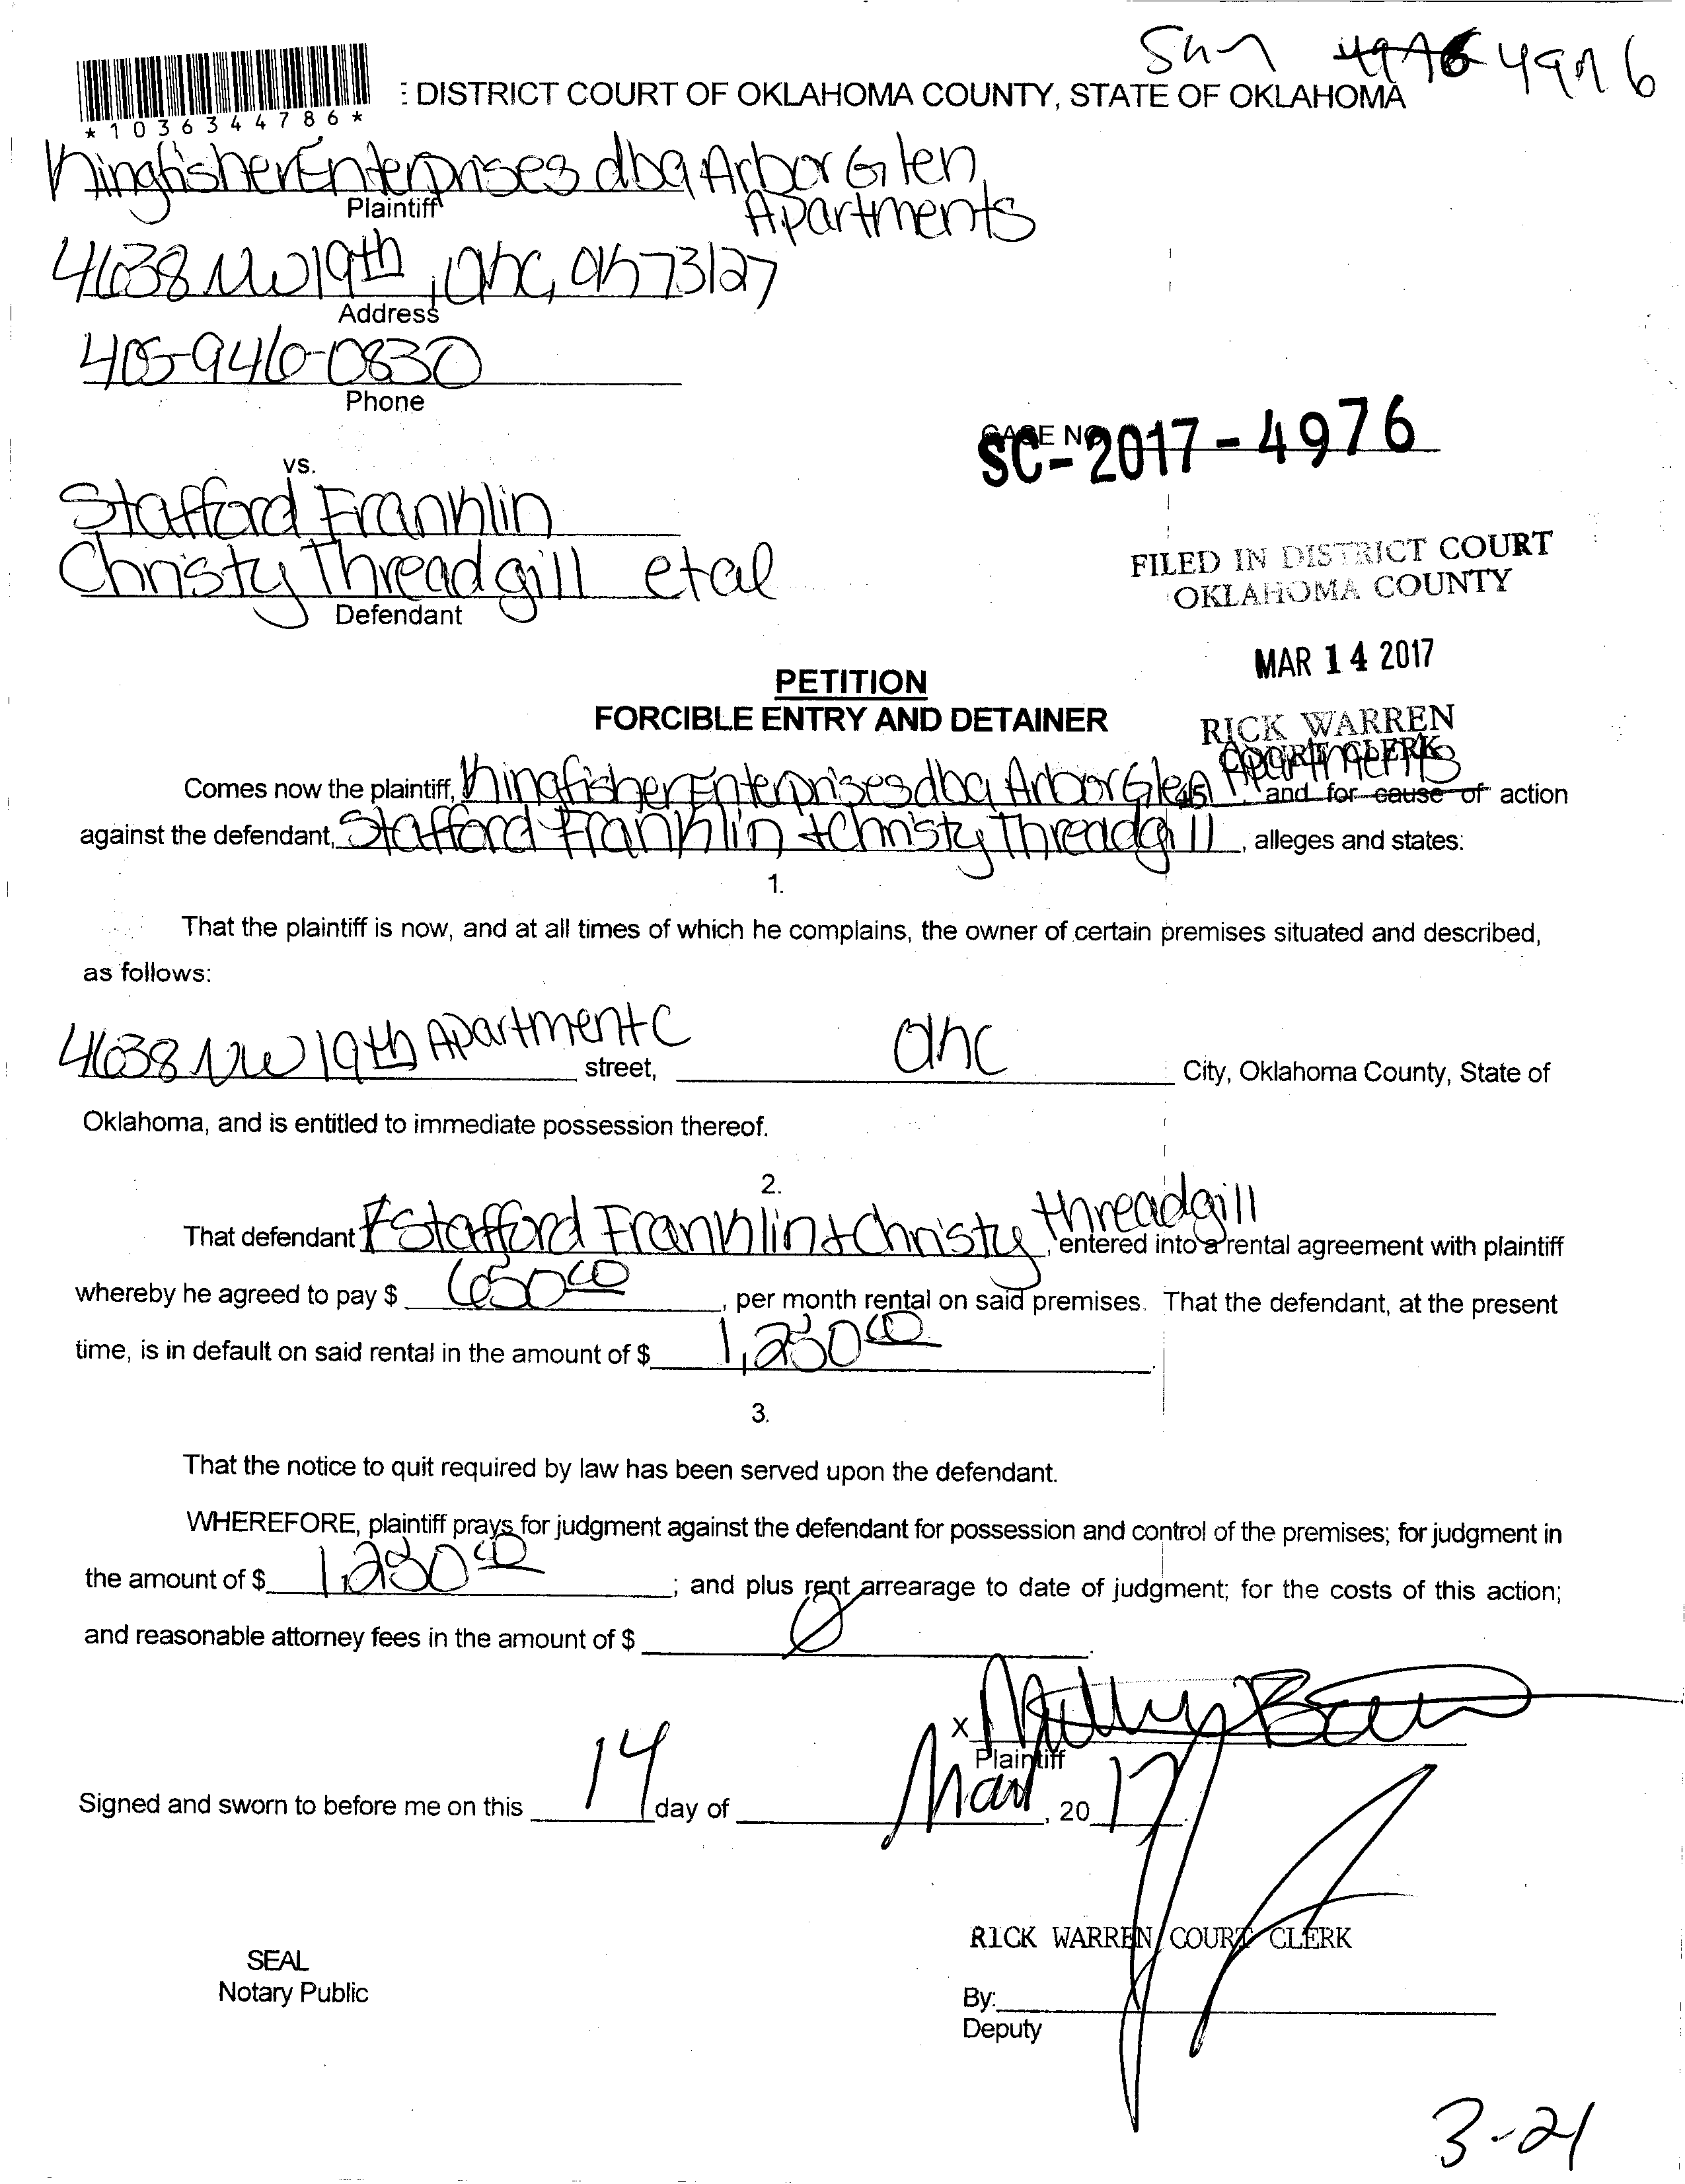 4976 4976
: DISTRICT COURT OF OKLAHOMA COUNTY, STATE OF OKLAHOMA
*1036344786*
Kingfisher Enterprises dba Arbor Glen
Apartments
Plaintiff
4638 NW 19th, OKC, OK 73127
Address
405-946-0830
Phone
CASE NO.
SC-2017-4976
vs.
Stafford Franklin
Christy Threadgill et al
Defendant
FILED IN DISTRICT COURT
OKLAHOMA COUNTY
MAR 14 2017
RICK WARREN
COURT CLERK
45
PETITION
FORCIBLE ENTRY AND DETAINER
Comes now the plaintiff, Kingfisher Enterprises dba Arbor Glen Apartments, and for cause of action
against the defendant, Stafford Franklin + Christy Threadgill, alleges and states:
1.
That the plaintiff is now, and at all times of which he complains, the owner of certain premises situated and described,
as follows:
4638 NW 19th Apartment C street, OKC City, Oklahoma County, State of
Oklahoma, and is entitled to immediate possession thereof.
2.
That defendant Stafford Franklin + Christy Threadgill, entered into a rental agreement with plaintiff
whereby he agreed to pay $ 650.00, per month rental on said premises. That the defendant, at the present
time, is in default on said rental in the amount of $ 1,250.00.
3.
That the notice to quit required by law has been served upon the defendant.
WHEREFORE, plaintiff prays for judgment against the defendant for possession and control of the premises; for judgment in
the amount of $ 1,250.00; and plus rent arrearage to date of judgment; for the costs of this action;
and reasonable attorney fees in the amount of $ 0.
X
Plaintiff
Signed and sworn to before me on this 14 day of Mar, 2017.
RICK WARREN COURT CLERK
SEAL
Notary Public
By:
Deputy
3-21